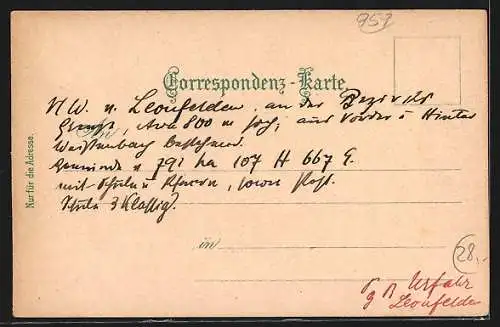 959
Correspondenz-Karte.
NW. v. Leonfelden, an der Bezirks
Grenze, etwa 800 m hoch; aus Vorder u Hinter
Weißenbach bestehend.
Gemeinde v 792 ha 107 H 667 E.
mit Schule u Pfarre, sowie Post.
Schule 3 Klassig.
Nur für die Adresse.
in
28,-
Urfahr
Leonfelden